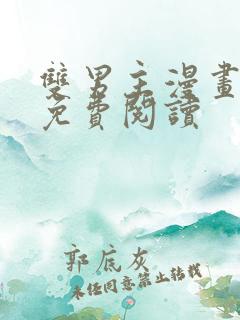 雙男主漫畫
免費閱讀
郭底灰
未经同意禁止转载